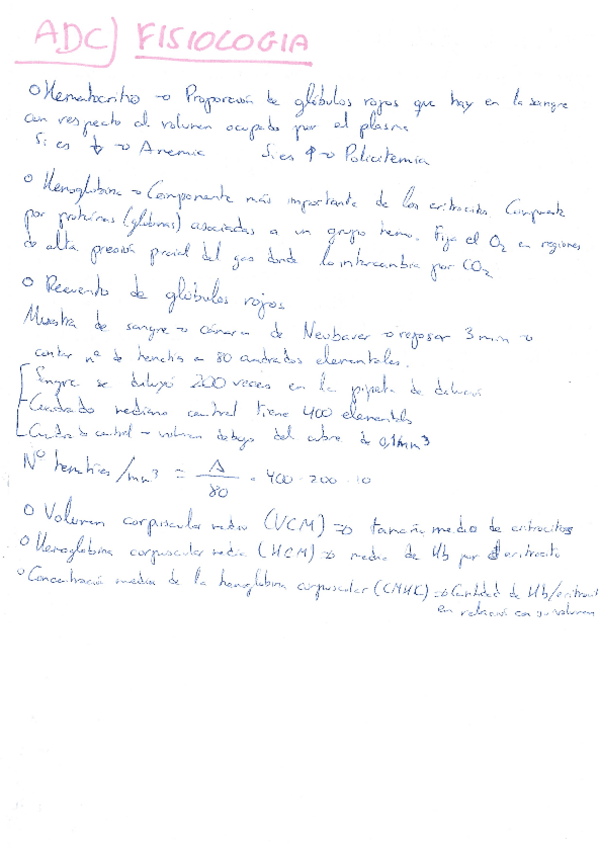 ADC) FISIOLOGIA
o Hematocrito → Proporción de glóbulos rojos que hay en la sangre
con respecto al volumen ocupado por el plasma
Si es ↓ → Anemia Si es ↑ → Policitemia
o Hemoglobina → Componente más importante de los eritrocitos. Compuesta
por proteínas (globinas) asociadas a un grupo hemo. Fija el O2 en regiones
de alta presión parcial del gas donde lo intercambia por CO2
o Recuento de glóbulos rojos
Muestra de sangre → cámara de Neubauer → reposar 3 min →
contar nº de hematíes en 80 cuadrados elementales.
Sangre se diluyó 200 veces en la pipeta de dilución
Cuadrado mediano central tiene 400 elementales
Cuadrado central → volumen debajo del cubre de 0,1mm3
Nº hematíes/mm3 = A/80 · 400 · 200 · 10
o Volumen corpuscular medio (VCM) ⇒ tamaño medio de eritrocitos
o Hemoglobina corpuscular media (HCM) ⇒ media de Hb por eritrocito
o Concentració media de la hemoglobina corpuscular (CMHC) ⇒ Cantidad de Hb/eritrocit
en relación con su volumen